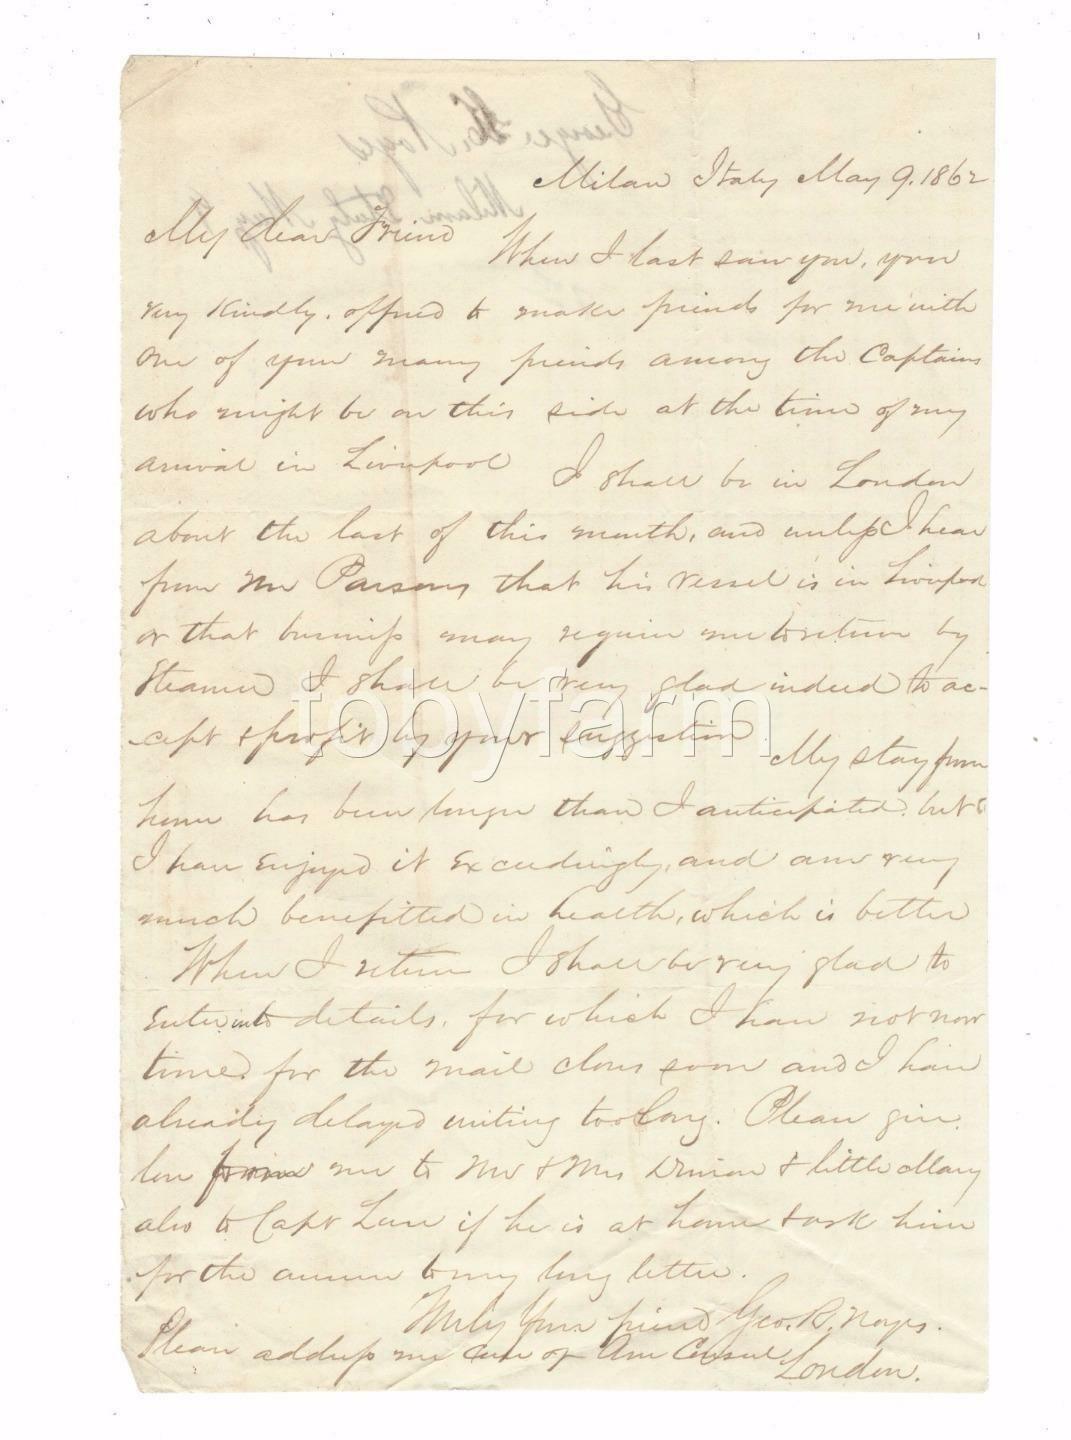 Milan Italy May 9. 1862
My dear Friend
When I last saw you, you
very kindly. offred to make friends for me with
one of your many friends among the Captains
who might be on this side at the time of my
arrival in Liverpool I shall be in London
about the last of this month, and unless I hear
from Mr Parsons that his vessel is in Liverpool
or that business may require me to return by
Steamer I shall be very glad indeed to ac-
-cept & profit by your suggestion. My stay from
home has been longer than I anticipated. but
I have enjoyed it exceedingly, and am very
much benefitted in health, which is better
When I return I shall be very glad to
enter into details, for which I have not now
time. for the mail closes soon and I have
already delayed writing too long. Please give
love from me to Mr & Mrs & little Mary
also to Capt if he is at home & ask him
for the answer to my long letter.
Truly Your friend Geo. B. Noyes.
Please address me care of Am Consul London.
George Noyes
Milan Italy May 9
tobyfarm